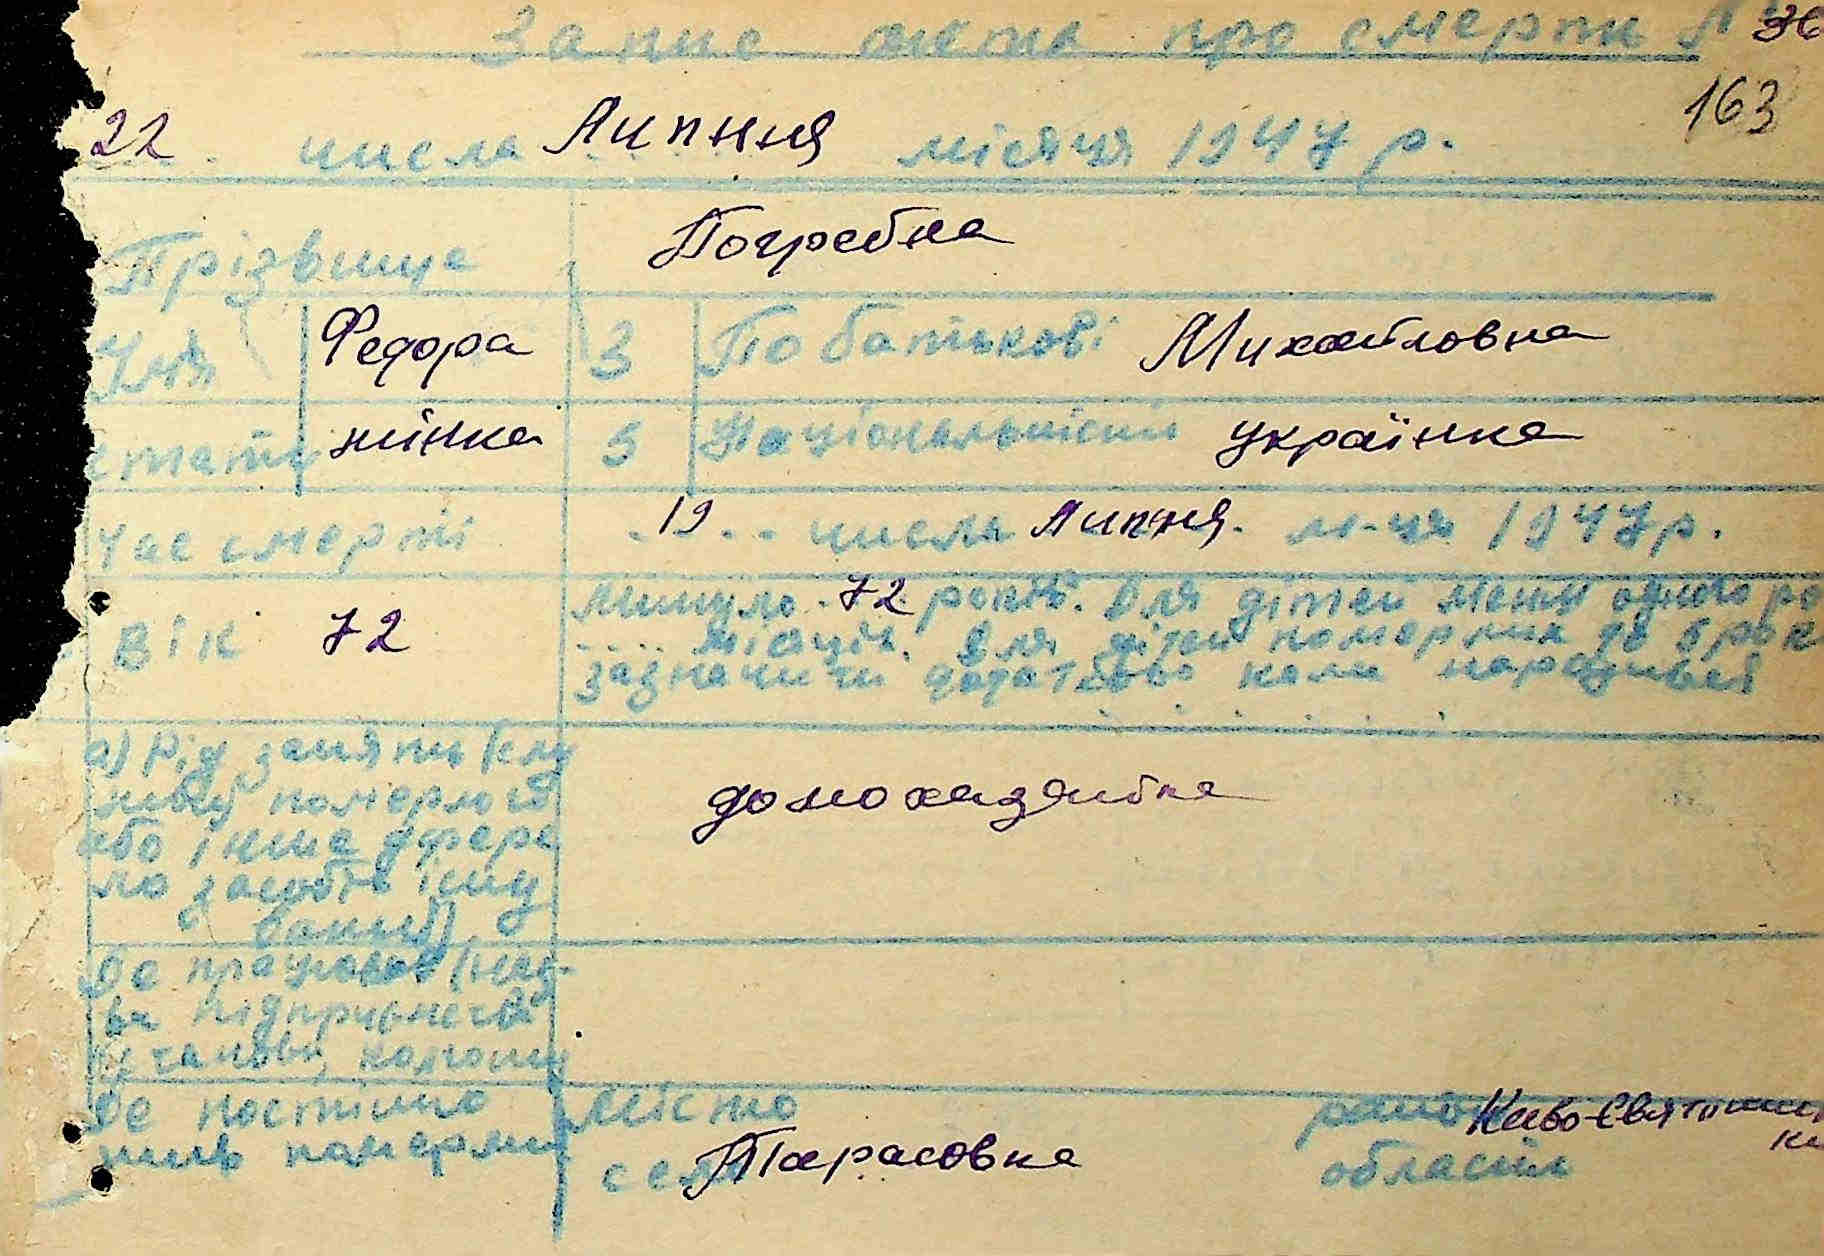 Запис акта про смерть № 36
163
22 числа Липння місяця 1947 р.
Прізвище Погребна
Імя Федора 3 По батькові Михайловна
стать жінка 5 Національність українка
Час смерті 19 числа Липня м-ця 1947 р.
Вік 72
Минуло 72 років. Для дітей менш одного ро
місяців. Для дітей померлих до 5 рок
зазначити додатково коли народився
а) Рід заняття
ний померлого
або інше джере
ло засобів існу
вання) домохазяйка
Де працював (наз-
ва підприємства
установи,
Де постійно місто район Киво-Святошин
жив померлий село Тарасовка область